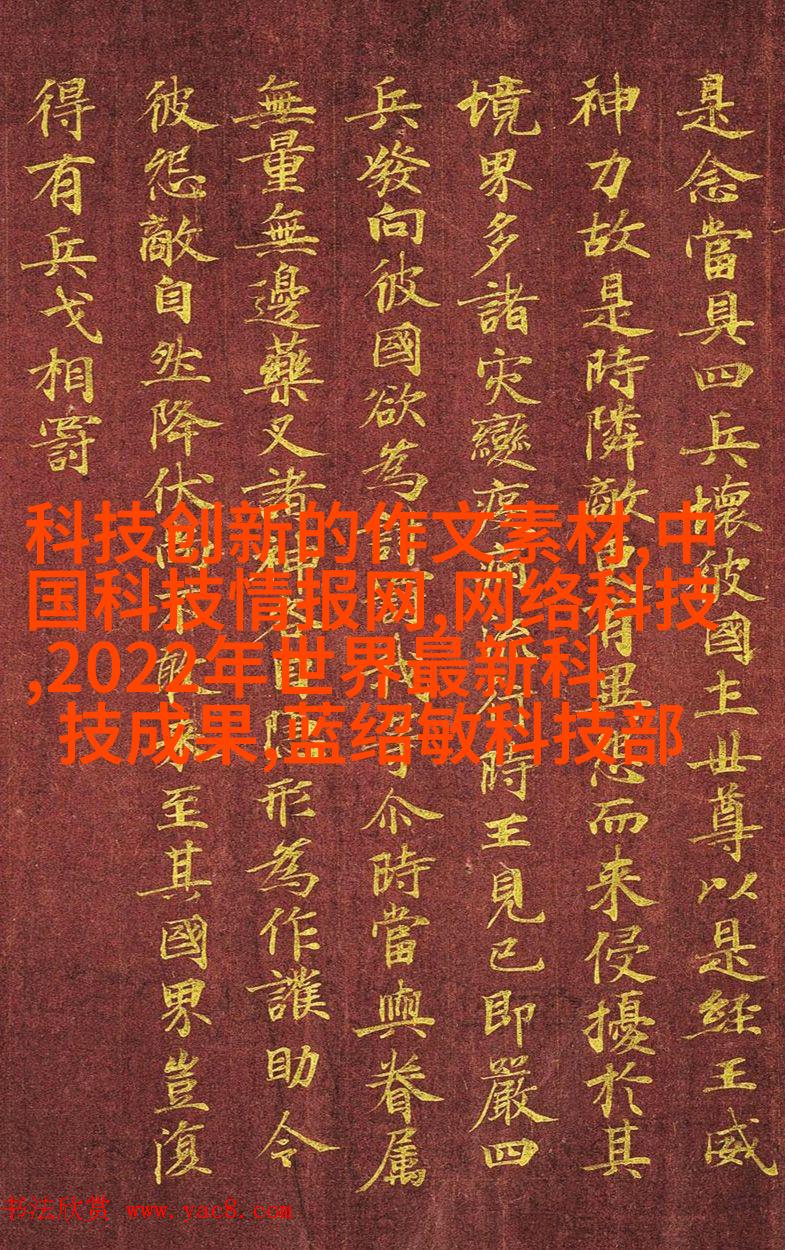 是念當具四兵壞彼國土世尊以是經王威
神力故是時隣敵更有異怨而来侵擾於其
境界多諸灾變疫病流行時王見已即嚴四
兵發向彼國欲為討罰我等尒時當與眷属
無量無邊藥叉諸神各自隱形為作護助令
彼怨敵自然降伏尚不敢来至其國界豈復
得有兵戈相罸
科技创新的作文素材,中
国科技情报网,网络科技
,2022年世界最新科
技成果,蓝绍敏科技部
书法欣赏 www.yac8.com